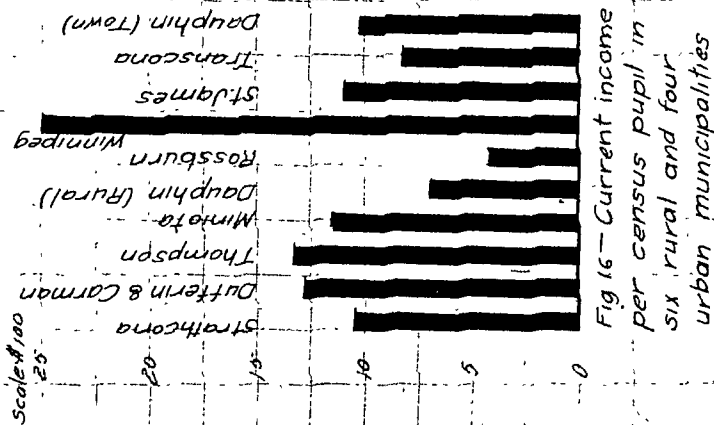 Scale $100
25
20
15
10
5
0
Strathcona
Dufferin & Carman
Thompson
Miniota
Dauphin (Rural)
Rossburn
Winnipeg
St. James
Transcona
Dauphin (Town)
Fig 16 - Current income
per census pupil in
six rural and four
urban municipalities